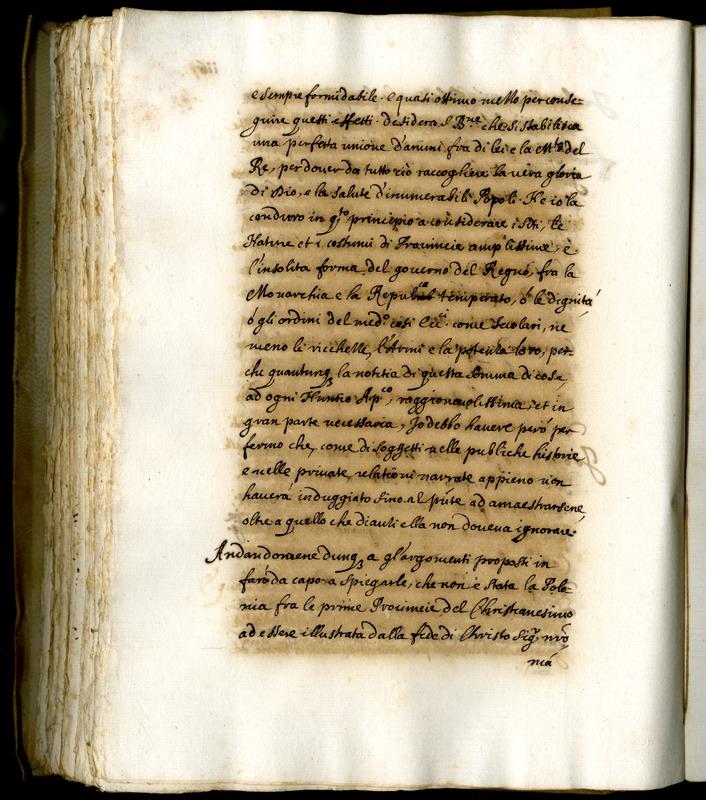 e sempre formidabile. e quasi ottimo mezzo per conse=
guire questi effetti. desidera S. B.ne che si stabilisca
una perfetta unione d'animi fra di lei e la M.tà del
Re, per dover da tutto ciò raccogliere la vera gloria
di Dio, e la salute d'inumerabili Popoli. Ne io la
condurò in q.to principio a considerare i Siti, le
Nature et i costumi di Provincie amplissime, e
l'insolita forma del governo del Regno, fra la
Monarchia e la Republ.ca temperato, ò le dignità
ò gli ordini del med.o così Ecc.ci come Secolari, ne
meno le ricchezze, l'Armi e la potenza loro, per=
che quantunq; la notitia di questa somma di cose,
ad ogni Nuntio Ap.co, raggionevolissima, et in
gran parte necessaria, Io debbo havere però per
fermo che, come di soggetti nelle publiche historie
e nelle private relationi narrate appieno non
haverà induggiato sino al pñte ad amaestrarsene,
oltre a quello che dianzi ella non doveva ignorare.
Andandomene dunq; a gl'argomenti proposti in
farò da capo a spiegarle, che non è stata la Polo
nia fra le prime Provincie del Christianesimo
ad essere illustrata dalla fede di Christo Sig.r nr̃o
mà